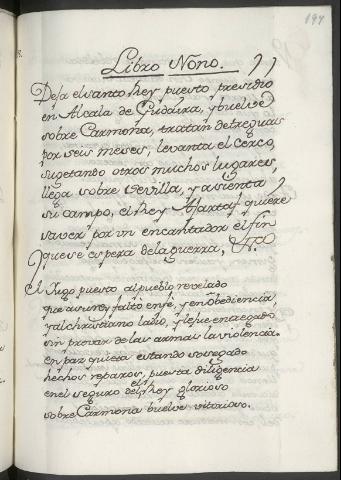 197
Libro Nono.
Deja el santo Rey puesto presidio
en Alcala de Guidaira, y buelve
sobre Carmona, tratan de treguas
por seis meses, levanta el Cerco,
sugetando otros muchos lugares,
llega sobre Sevilla, y asienta
su campo, el Rey Axataf quiere
saver por un encantador el fin
que se espera de la guerra,
el Jugo puesto al pueblo revelado
que a su rey faltò en fe, y en obediencia,
y al christiano la dio, y le fue entregado
sin provar de las armas la violencia.
en paz quieta estando sosegado
hechos reparos, puesta diligencia
en el seguro del el Rey glorioso
sobre Carmona buelve vitorioso.